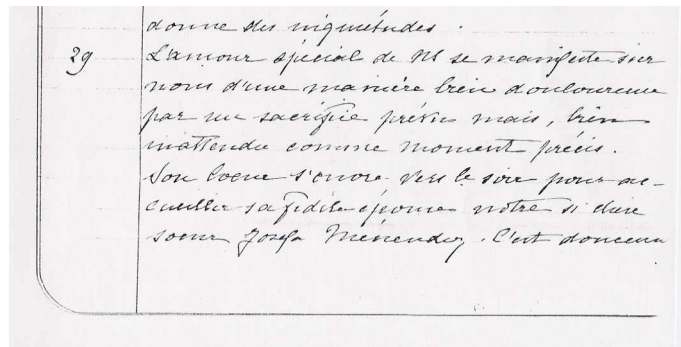 donne des inquiétudes.
29 L'amour spécial de NS se manifeste sur
nous d'une manière bien douloureuse
par un sacrifice prévu mais, bien
inattendu comme moment précis.
Son Coeur s'ouvre vers le soir pour ac-
cueillir sa fidèle épouse notre si chère
soeur Josefa Menendez. C'est doucem